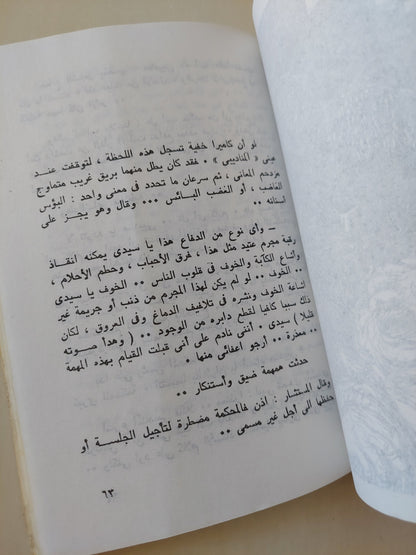 لو أن كاميرا خفية تسجل هذه اللحظة ، لتوقفت عند
عينى « المناديبى » . فقد كان يطل منهما بريق غريب متماوج
مزدحم المعانى ، ثم سرعان ما تحدد فى معنى واحد : البؤس
الغاضب ، أو الغضب البائس ... وقال وهو يجز على
أسنانه ..
ــ وأى نوع من الدفاع هذا يا سيدى يمكنه انقاذ
رقبة مجرم عتيد مثل هذا ، فرق الأحباب ، وحطم الأحلام ،
وأشاع الكآبة والخوف فى قلوب الناس .. الخوف يا سيدى
.. الخوف .. لو لم يكن لهذا المجرم من ذنب أو جريمة غير
اشاعة الخوف ونشره فى تلافيف الدماغ وفى العروق ، لكان
ذلك سببا كافيا لقطع دابره من الوجود .. ( وهدأ صوته
قليلا ) سيدى . أننى نادم على أنى قبلت القيام بهذه المهمة
.. معذرة .. أرجو اعفائى منها .
حدثت همهمة ضيق وأستنكار ..
وقال المستشار : اذن فالمحكمة مضطرة لتأجيل الجلسة أو
حفظها الى أجل غير مسمى ..
٦٣